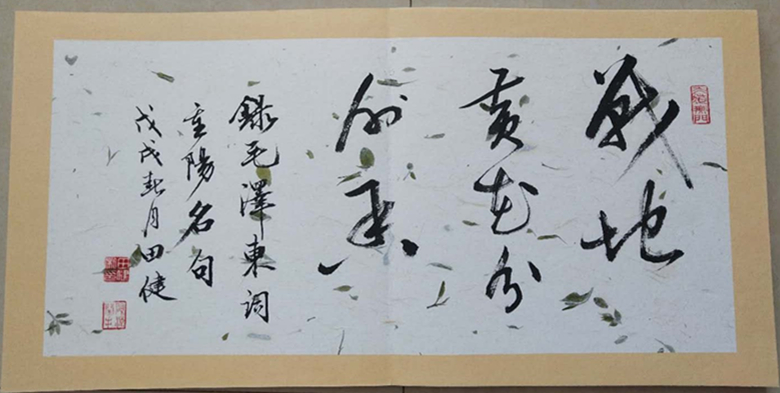 戰地
黄花分
外香
録毛澤東詞
重陽名句
戊戌春月田健